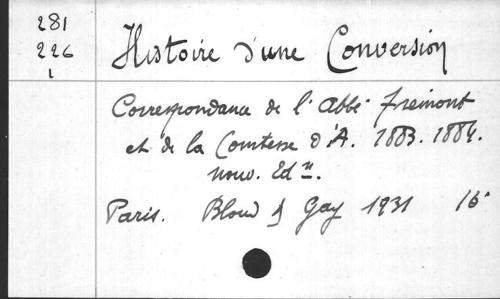 281
226
1
Histoire d'une Conversion
Correspondance de l'Abbé Frémont
et de la Comtesse d'A. 1883. 1884.
nouv. Edⁿ.
Paris. Bloud & Gay 1931 16°